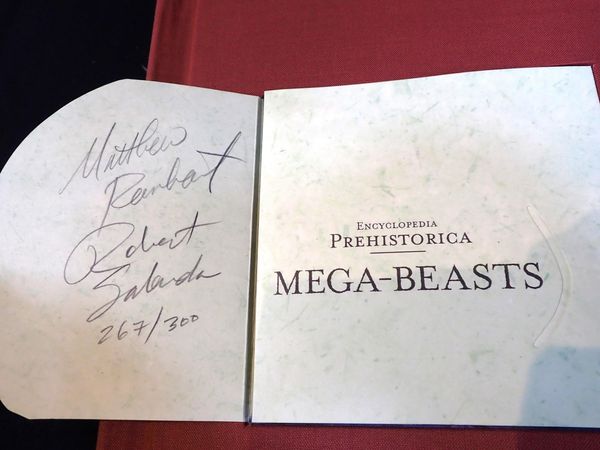 Matthew
Reinhart
Robert
Sabuda
267/300
ENCYCLOPEDIA
PREHISTORICA
MEGA-BEASTS